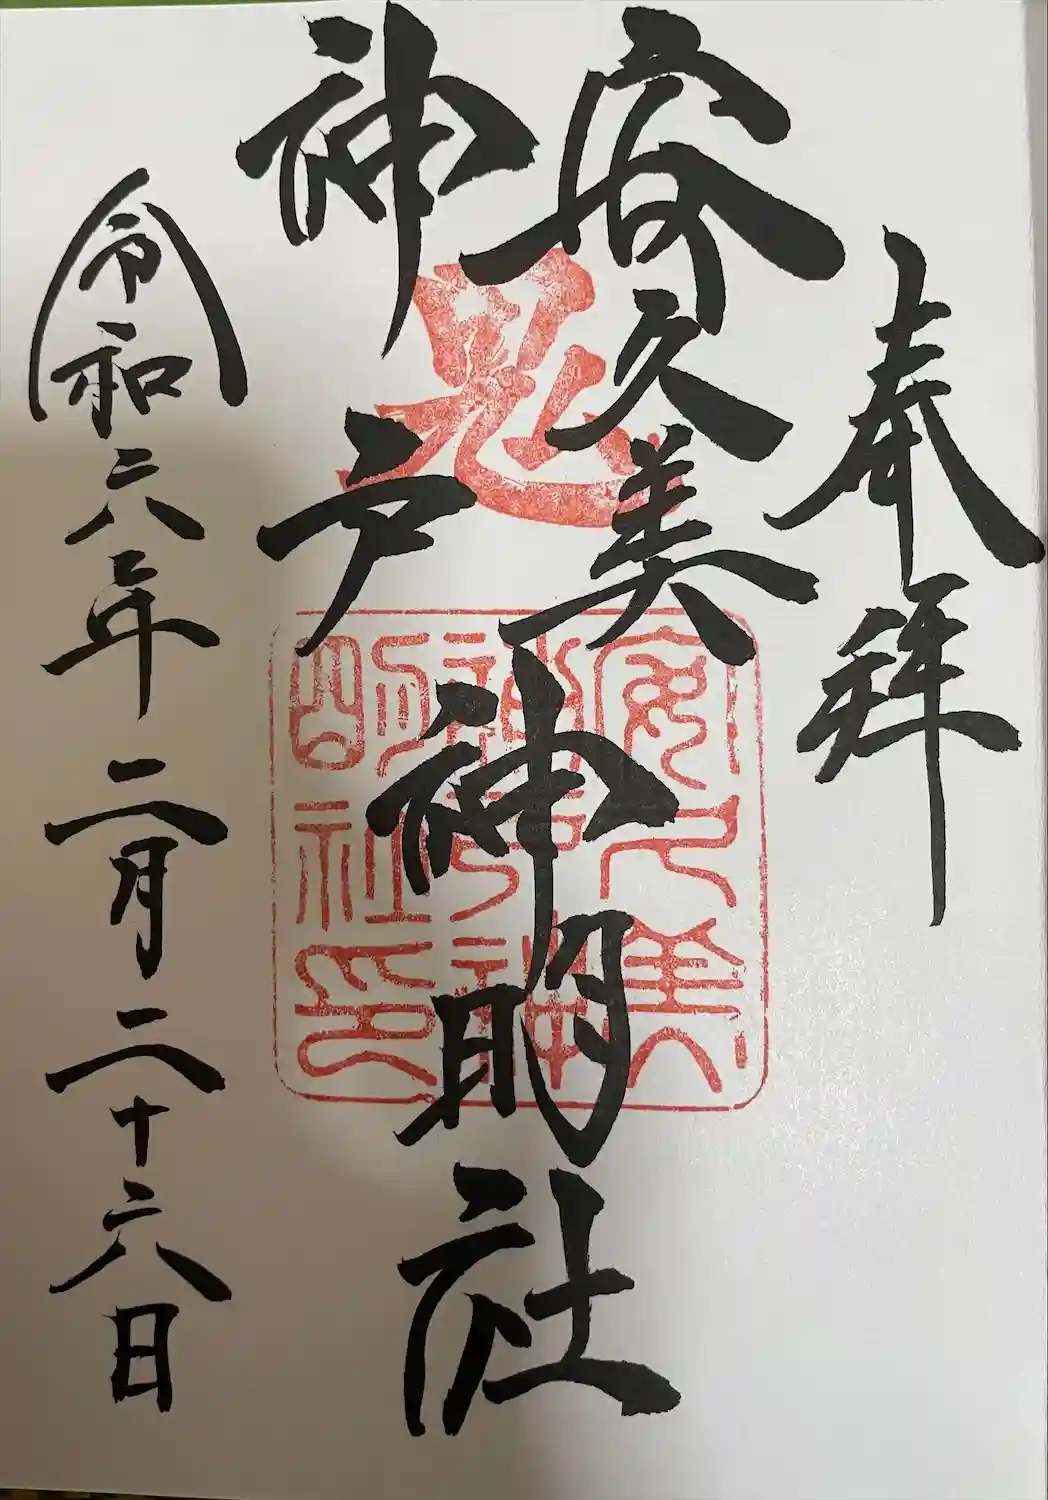 奉拝
安久美
神戸
神明社
令和六年二月二十六日
鬼
安久美
神戸神
明社印